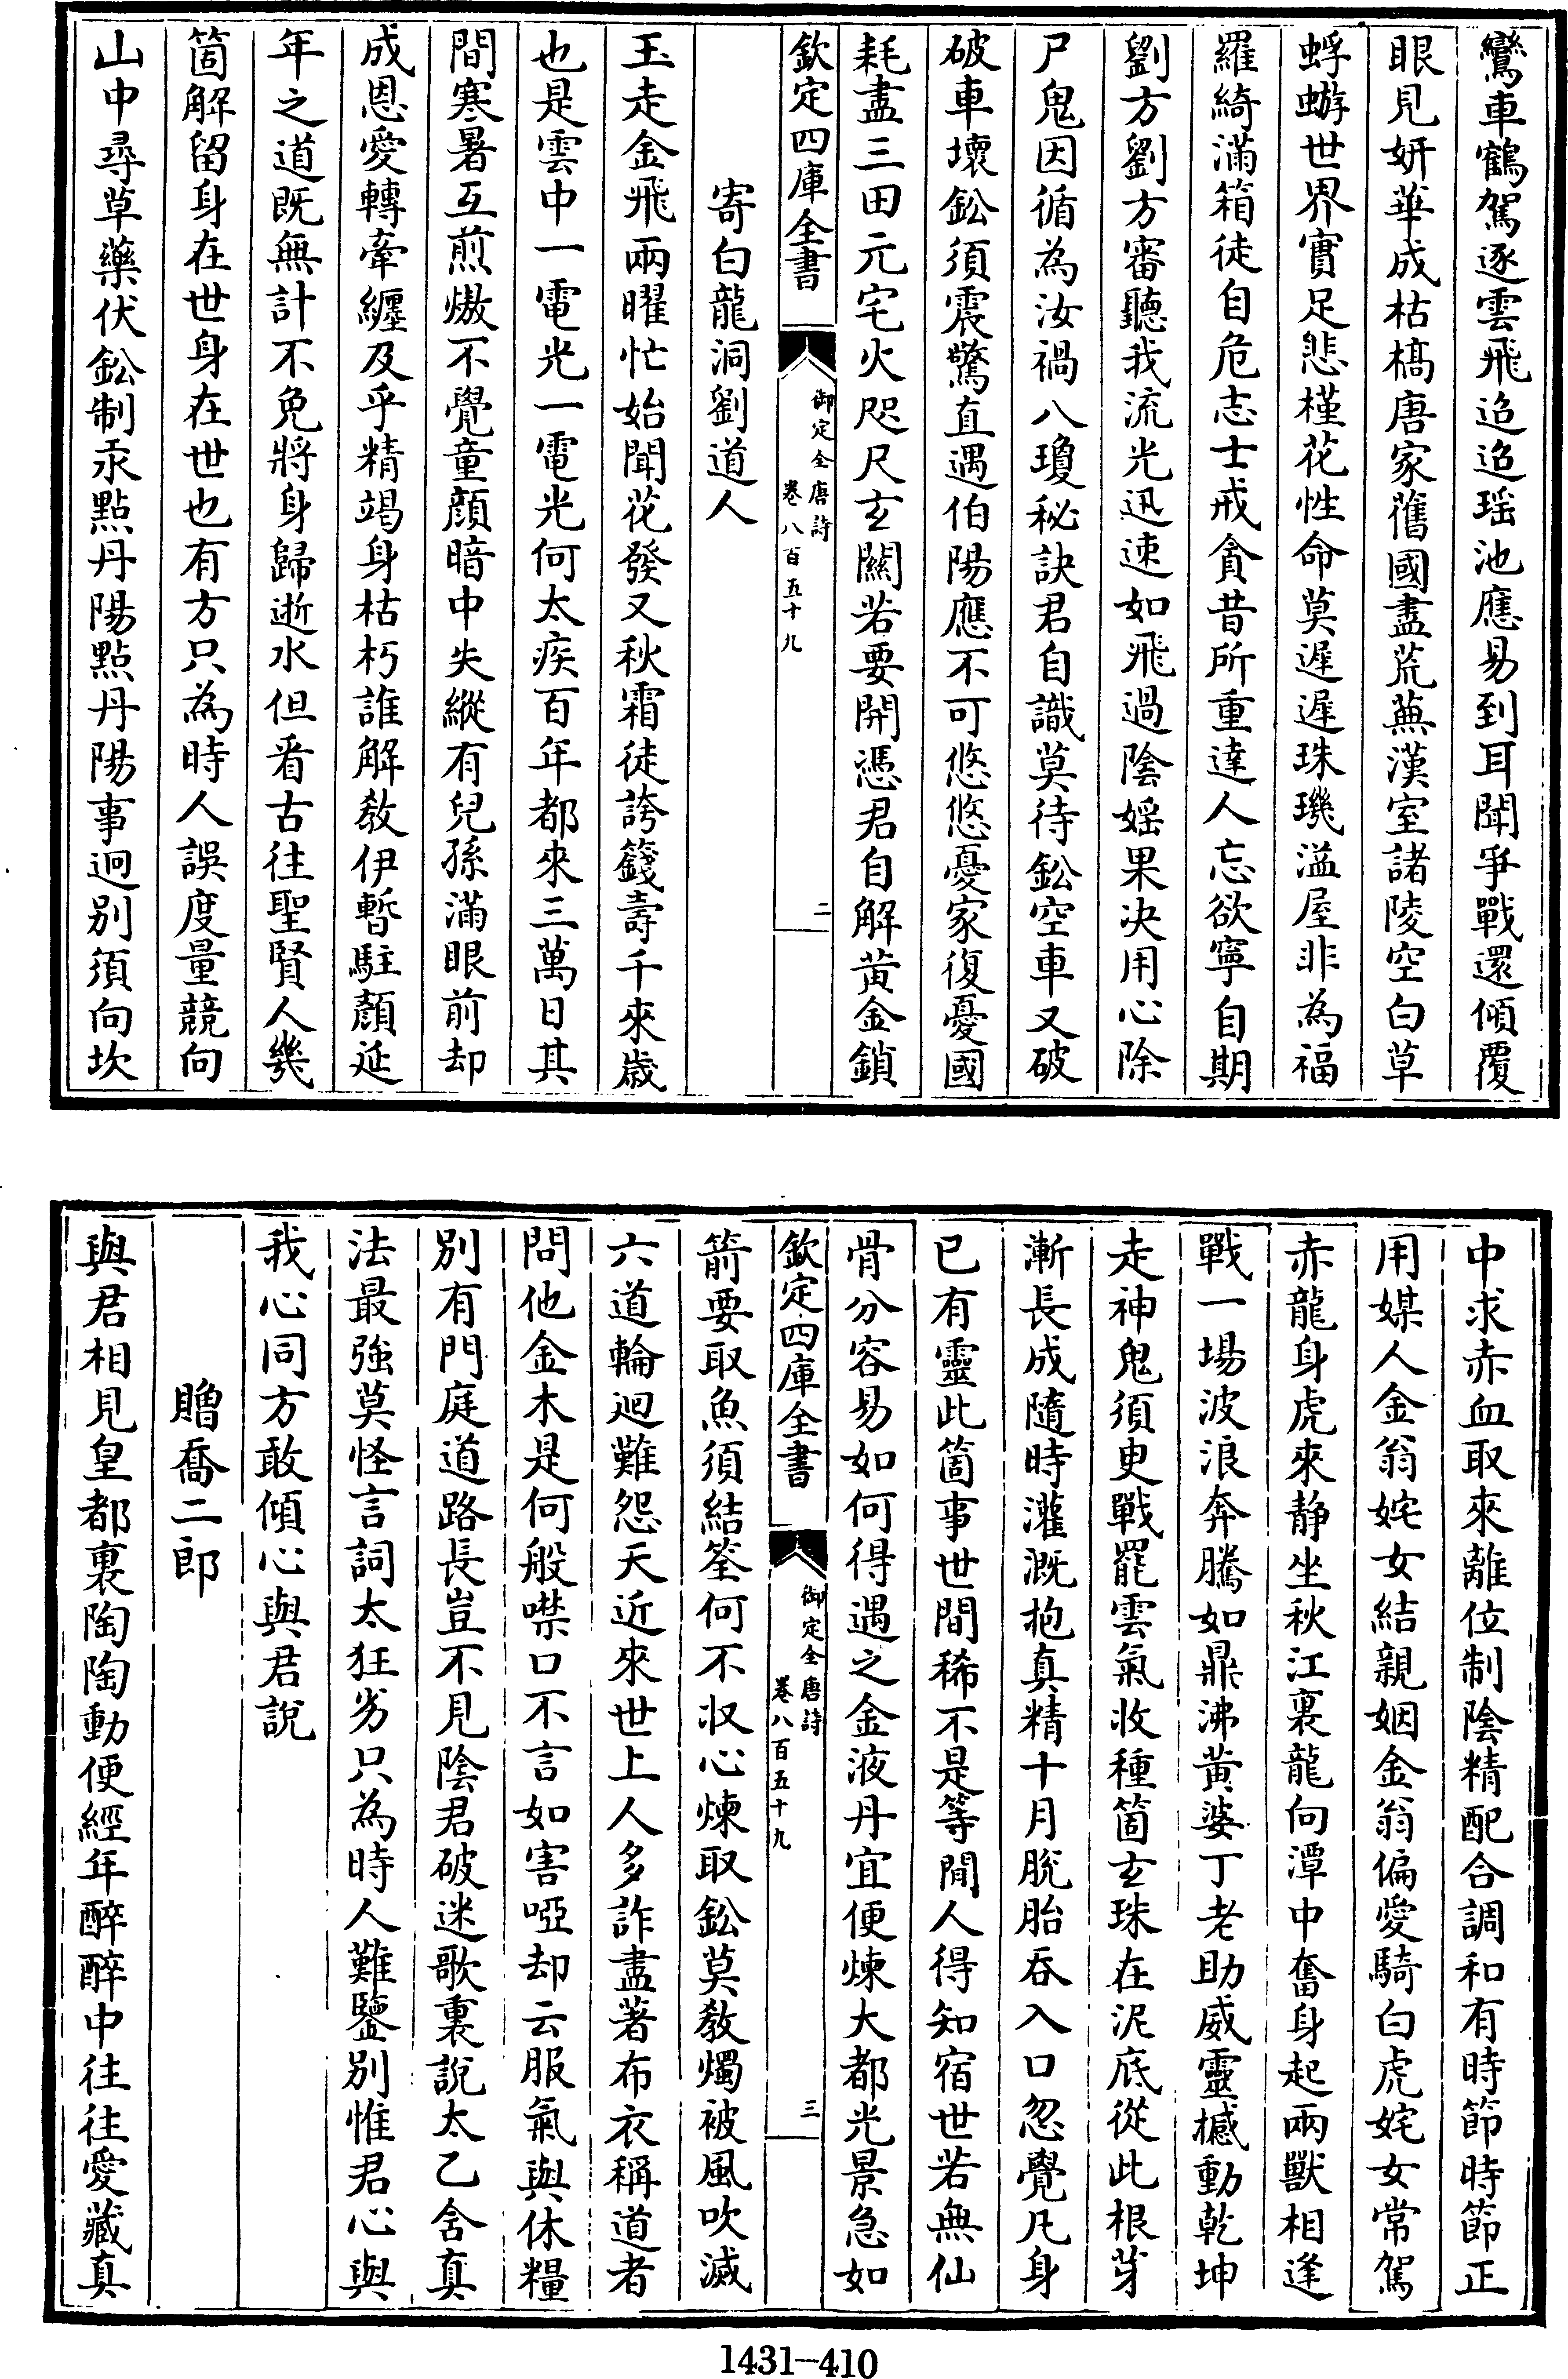 鸞車鶴駕逐雲飛迢迢瑤池應易到耳聞爭戰還傾覆
眼見妍華成枯槁唐家舊國盡荒蕪漢室諸陵空白草
蜉蝣世界實足悲槿花性命莫遲遲珠璣溢屋非為福
羅綺滿箱徒自危志士戒貪昔所重達人忘欲寧自期
劉方劉方審聽我流光迅速如飛過陰媱果决用心除
尸鬼因循為汝禍八瓊秘訣君自識莫待鈆空車又破
破車壞鈆須震驚直遇伯陽應不可悠悠憂家復憂國
耗盡三田元宅火咫尺玄關若要開憑君自解黃金鎖
欽定四庫全書
御定全唐詩
卷八百五十九
二
寄白龍洞劉道人
玉走金飛兩曜忙始聞花發又秋霜徒誇籛壽千來歲
也是雲中一電光一電光何太疾百年都來三萬日其
間寒暑互煎熬不覺童顏暗中失縱有兒孫滿眼前却
成恩愛轉牽纏及乎精竭身枯朽誰解教伊暫駐顏延
年之道既無計不免將身歸逝水但看古往聖賢人幾
箇解留身在世身在世也有方只為時人誤度量競向
山中尋草藥伏鈆制汞點丹陽點丹陽事迥别須向坎
中求赤血取來離位制陰精配合調和有時節時節正
用媒人金翁姹女結親姻金翁偏愛騎白虎姹女常駕
赤龍身虎來静坐秋江裏龍向潭中奮身起兩獸相逢
戰一場波浪奔騰如鼎沸黃婆丁老助威靈撼動乾坤
走神鬼須臾戰罷雲氣收種箇玄珠在泥底從此根芽
漸長成隨時灌溉抱真精十月脫胎吞入口忽覺凡身
已有靈此箇事世間稀不是等閒人得知宿世若無仙
骨分容易如何得遇之金液丹宜便煉大都光景急如
欽定四庫全書
御定全唐詩
卷八百五十九
三
箭要取魚須結筌何不收心煉取鈆莫教燭被風吹滅
六道輪迴難怨天近來世上人多詐盡著布衣稱道者
問他金木是何般噤口不言如害啞却云服氣與休糧
别有門庭道路長豈不見陰君破迷歌裏說太乙含真
法最強莫怪言詞太狂劣只為時人難鑒别惟君心與
我心同方敢傾心與君說
贈喬二郎
與君相見皇都裏陶陶動便經年醉醉中往往愛藏真
1431-410